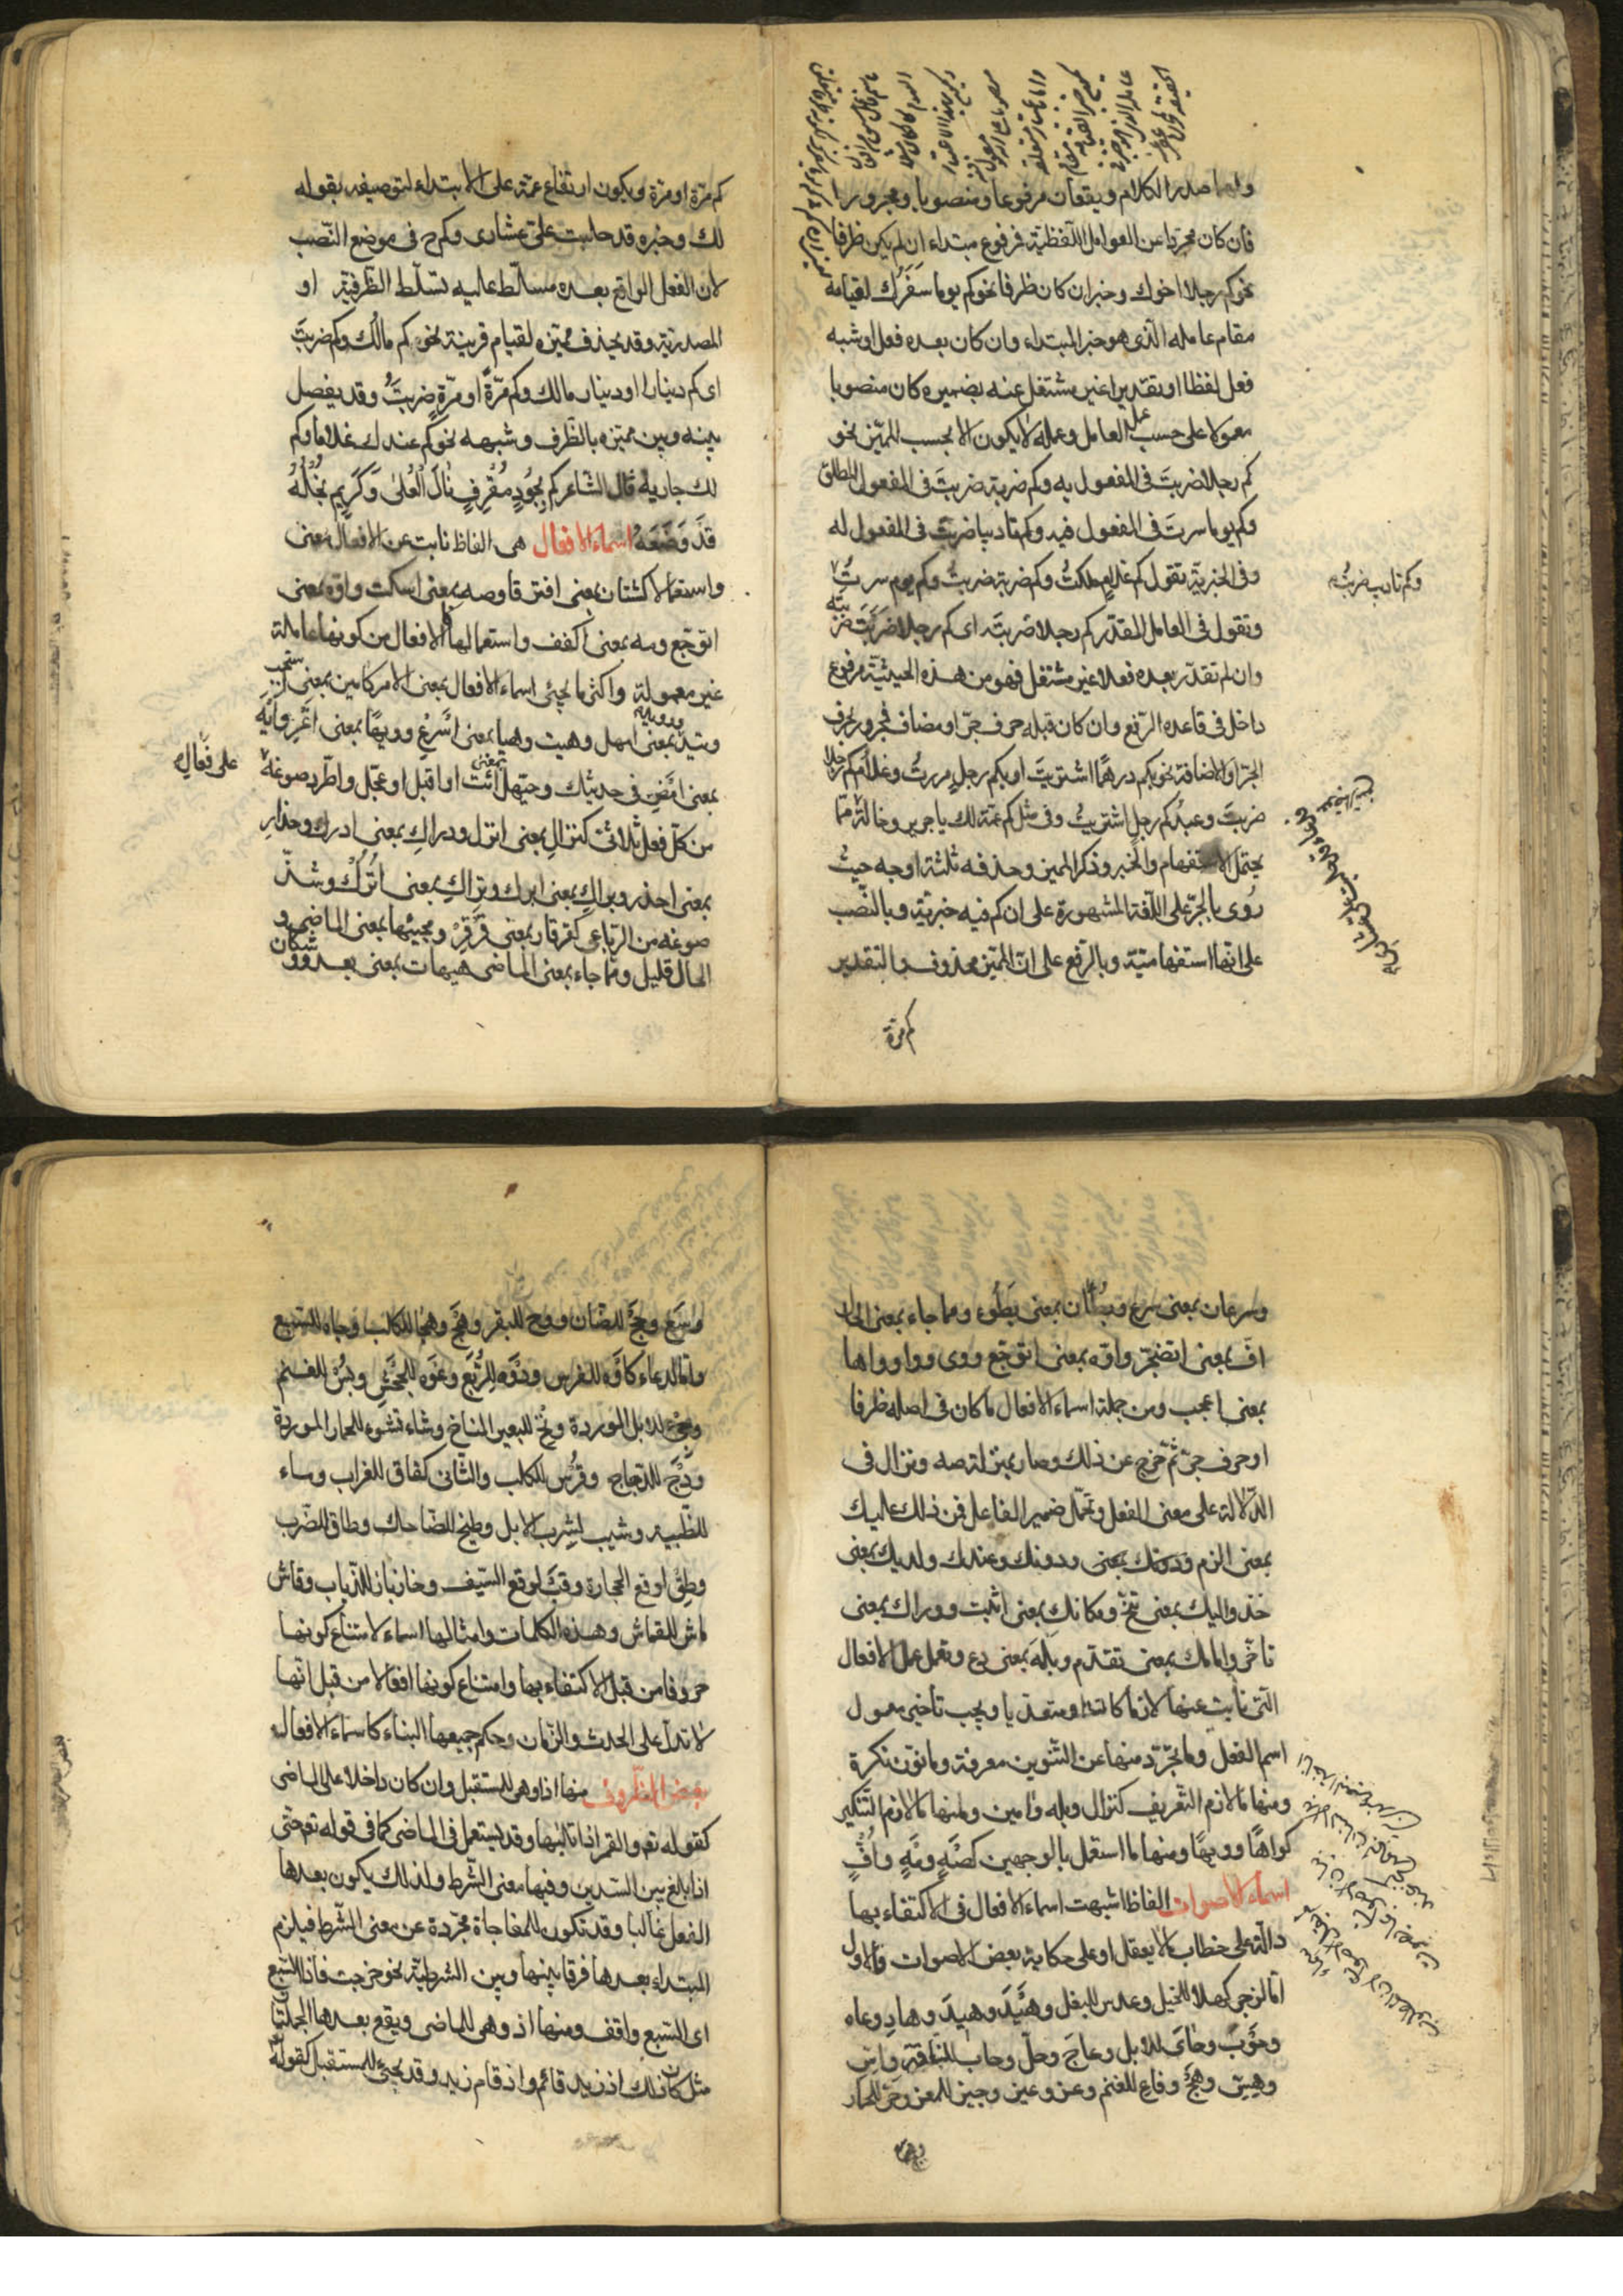 ولهما صدر الكلام ويقعان مرفوعا ومنصوبا ومجرورا
فان كان مجردا عن العوامل اللفظية فمرفوع مبتداء ان لم يكن ظرفا
نحو كم رجلا اخوك وخبر ان كان ظرفا نحو كم يوما سفرك لقيامه
مقام عامله الذى هو خبر المبتداء وان كان بعده فعل او شبه
فعل لفظا او تقديرا غير مشتغل عنه بضميره كان منصوبا
معمولا على حسب عمل العامل وعمله لا يكون الا بحسب المميز نحو
كم رجلا ضربت فى المفعول به وكم ضربة ضربت فى المفعول المطلق
وكم يوما سرت فى المفعول فيه وكم تاديبا ضربت فى المفعول له
وفى الخبرية تقول كم غلام ملكت وكم ضربة ضربت وكم يوم سرت
وكم تاديب ضربت
وتقول فى العامل المقدر كم رجلا ضربت اى كم رجلا ضربت ضربته
وان لم تقدر بعده فعلا غير مشتغل فهو من هذه الحيثية مرفوع
داخل فى قاعده الرفع وان كان قبله حرف جر او مضاف فمجرور بحرف
الجر او الاضافة نحو بكم درهما اشتريت او بكم رجل مررت وغلام كم رجلا
ضربت وعبد كم رجل اشتريت وفى مثل كم عمة لك يا جرير وخالة مما
يحتمل الاستفهام والخبر وذكر المميز وحذفه ثلثة اوجه حيث
روى بالجر على اللغة المشهورة على ان كم فيه خبرية وبالنصب
على انها استفهامية وبالرفع على ان المميز محذوف والتقدير
كم مرة
كم مرة او مرة ويكون ارتفاع عمة على الابتداء لتوصيفه بقوله
لك وخبره قد حلبت على عشارى وكم ح فى موضع النصب
لان الفعل الواقع بعده مسلط عليه تسلط الظرفية او
المصدرية وقد يحذف مميزه لقيام قرينة نحو كم مالك وكم ضربت
اى كم دينارا او دينار مالك وكم مرة او مرة ضربت وقد يفصل
بينه وبين مميزه بالظرف وشبهه نحو كم عندك غلاما وكم
لك جارية قال الشاعر كم بجود مقرف نال العلى وكريم بخله
قد وضعه اسماء الافعال هى الفاظ نابت عن الافعال معنى
واستعمالا كشتان بمعنى افترقا وصه بمعنى اسكت واوه بمعنى
اتوجع ومه بمعنى اكفف واستعمالها كالافعال من كونها عاملة
غير معمولة واكثر ما يجئ اسماء الافعال بمعنى الامر كامين بمعنى استجب
وتيد بمعنى امهل وهيت وهيا بمعنى اسرع وويها بمعنى اغر وايه
بمعنى امض فى حديثك وحيهل بمعنى ائت او اقبل او عجل واطرد صوغه
على فعال
من كل فعل ثلاثى كنزال بمعنى انزل ودراك بمعنى ادرك وحذار
بمعنى احذر وبراك بمعنى ابرك وتراك بمعنى اترك وشذ
صوغه من الرباعى كقرقار بمعنى قرقر ومجيئها بمعنى الماضى و
الحال قليل ومما جاء بمعنى الماضى هيهات بمعنى بعد ووشكان
وسرعان بمعنى سرع وبطان بمعنى بطوء ومما جاء بمعنى الحال
اف بمعنى اتضجر واوه بمعنى اتوجع ووى ووا وواها
بمعنى اعجب ومن جملة اسماء الافعال ما كان فى اصله ظرفا
او حرف جر ثم خرج عن ذلك وصار بمنزلة صه ونزال فى
الدلالة على معنى الفعل وتحمل ضمير الفاعل فمن ذلك عليك
بمعنى الزم ودونك بمعنى ودونك وعندك ولديك بمعنى
خذ واليك بمعنى تنح ومكانك بمعنى اثبت ووراك بمعنى
تاخر وامامك بمعنى تقدم وبله بمعنى دع وتعمل عمل الافعال
التى نابت عنها لازما كانت او متعديا ويجب تاخير معمول
اسم الفعل وما تجرد منها عن التنوين معرفة وما نون نكرة
ومنها ما لازم التعريف كنزال وبله وامين ومنها ما لازم التنكير
كواها وويها ومنها ما استعمل بالوجهين كصه ومه واف
اسماء الاصوات الفاظ اشبهت اسماء الافعال فى الاكتفاء بها
دالة على خطاب ما لا يعقل او على حكاية بعض الاصوات والاول
اما لزجر كهلا للخيل وعدس للبغل وهيد وهيد وهاد وعاه
وحوب وحاى للابل وعاج وحل وحاب للناقة واس
وهس وهج وفاع للغنم وعز وعيز وحيز للمعز وحر للحمار
وسع وحج للضان ووح للبقر وهج وهجا للكلب وجاه للسبع
واما لدعاء كاوه للفرس ودوه للربع وعوه للجحش وبس للغنم
وجئ للابل الموردة ونخ للبعير المناخ وشاء تشوء للحمار الموردة
ودج للدجاج وقوس للكلب والثانى كغاق للغراب وماء
للظبية وشيب لشرب الابل وطيخ للضاحك وطاق للضرب
وطق لوقع الحجارة وقب لوقع السيف وخازباز للذباب وقاش
ماش للقماش وهذه الكلمات وامثالها اسماء لامتناع كونها
حروفا من قبل الاكتفاء بها وامتناع كونها افعالا من قبل انها
لا تدل على الحدث والزمان وحكم جميعها البناء كاسماء الافعال
بعض الظروف منها اذا وهى للمستقبل وان كان داخلا على الماضى
كقوله تع والقمر اذا تليها وقد يستعمل فى الماضى كما فى قوله تع حتى
اذا بلغ بين السدين وفيها معنى الشرط ولذلك يكون بعدها
الفعل غالبا وقد تكون للمفاجاة مجردة عن معنى الشرط فيلزم
المبتداء بعدها فرقا بينها وبين الشرطية نحو خرجت فاذا السبع
اى السبع واقف ومنها اذ وهى للماضى ويقع بعدها الجملتان
مثل كان ذلك اذ زيد قائم واذ قام زيد وقد يجئ للمستقبل كقوله